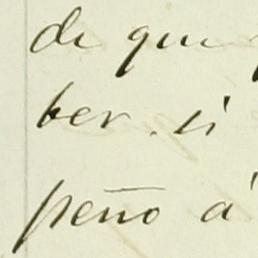 de que
ber. si
peño á